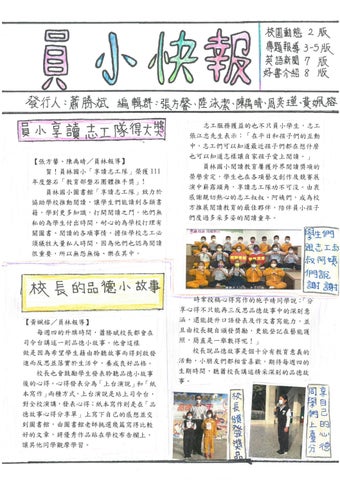 員小快報
校園動態 2 版
專題報導 3-5版
英語新聞 7 版
好書介紹 8 版
發行人：蕭勝斌 編輯群：張方馨、陸泳潔、陳禹晴、周奕瑾、黃姵容
員小享讀志工隊得大獎
【張方馨、陳禹晴／員林報導】
賀！員林國小「享讀志工隊」榮獲 111
年度磐石「教育部磐石團體推手獎」！
員林國小圖書館「享讀志工隊」致力於
協助學校推動閱讀，讓學生們能讀到各類書
籍，學到更多知識，打開閱讀之門。他們無
私的為學生付出時間，耐心的為學校打理音
開圖書、閱讀的各項事情。擔任學校志工必
須犧牲大量私人時間，因為他們也認為閱讀
很重要，所以無怨無悔，樂在其中。
志工服務獲益的也不只員小學生，志工
張江忠先生表示：「在平日和孩子們的互動
中，志工們可以知道最近孩子們都在想什麼
也可以知道怎樣讓自家孩子愛上閱讀。」
員林國小閱讀教育屢獲外界閱讀獎項的
榮譽肯定，學生也在各項藝文創作及競賽展
演中嶄露頭角，享讀志工隊功不可沒。由衷
感謝親切熱心的志工叔叔、阿姨們，成為校
方推展閱讀教育的最佳夥伴，陪伴員小孩子
們度過多采多姿的閱讀童年。
學生們
跟志工叔
叔阿姨
們說
謝謝
校長的品德小故事
【黃姵榕／員林報導】
每週四的升旗時間，蕭勝斌校長都會在
司令台講述一則品德小故事。他會這樣
做是因為希望學生藉由聆聽故事而得到啟發
進而反思並落實於生活中，養成良好品格。
校長也會鼓勵學生發表聆聽品德小故事
後的心得，心得發表分為「上台演說」和「紙
本寫作」兩種方式，上台演說是站上司令台，
對全校演講，發表心得；紙本寫作則是在「品
德故事心得分享單」上寫下自己的感想並交
到圖書館，由圖書館老師挑選幾篇寫得比較
好的文章，將優秀作品貼在學校布告欄上，
讓其他同學觀摩學習。
時常投稿心得寫作的桃予晴同學說：「分
享心得不只能再三反思品德故事中的深刻意
涵，還能提升口語發表及作文書寫能力，並
且由校長親自頒發獎勵，更能登記在藝能護
照，簡直是一舉數得呢！」
校長說品德故事是個十分有教育意義的
活動，小朋友們都相當喜歡，期待每週四的
生朝時間，聽蕭校長講述精采深刻的品德故
事。
校長頒發獎品
同學們上臺分
享自己的心得